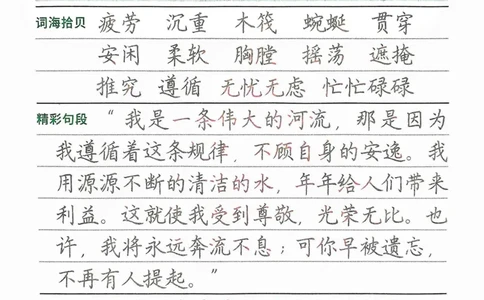 词海拾贝 疲劳 沉重 木筏 蜿蜒 贯穿
安闲 柔软 胸膛 摇荡 遮掩
推究 遵循 无忧无虑 忙忙碌碌
精彩句段 “我是一条伟大的河流，那是因为
我遵循着这条规律，不顾自身的安逸。我
用源源不断的清洁的水，年年给人们带来
利益。这就使我受到尊敬，光荣无比。也
许，我将永远奔流不息；可你早被遗忘，
不再有人提起。”